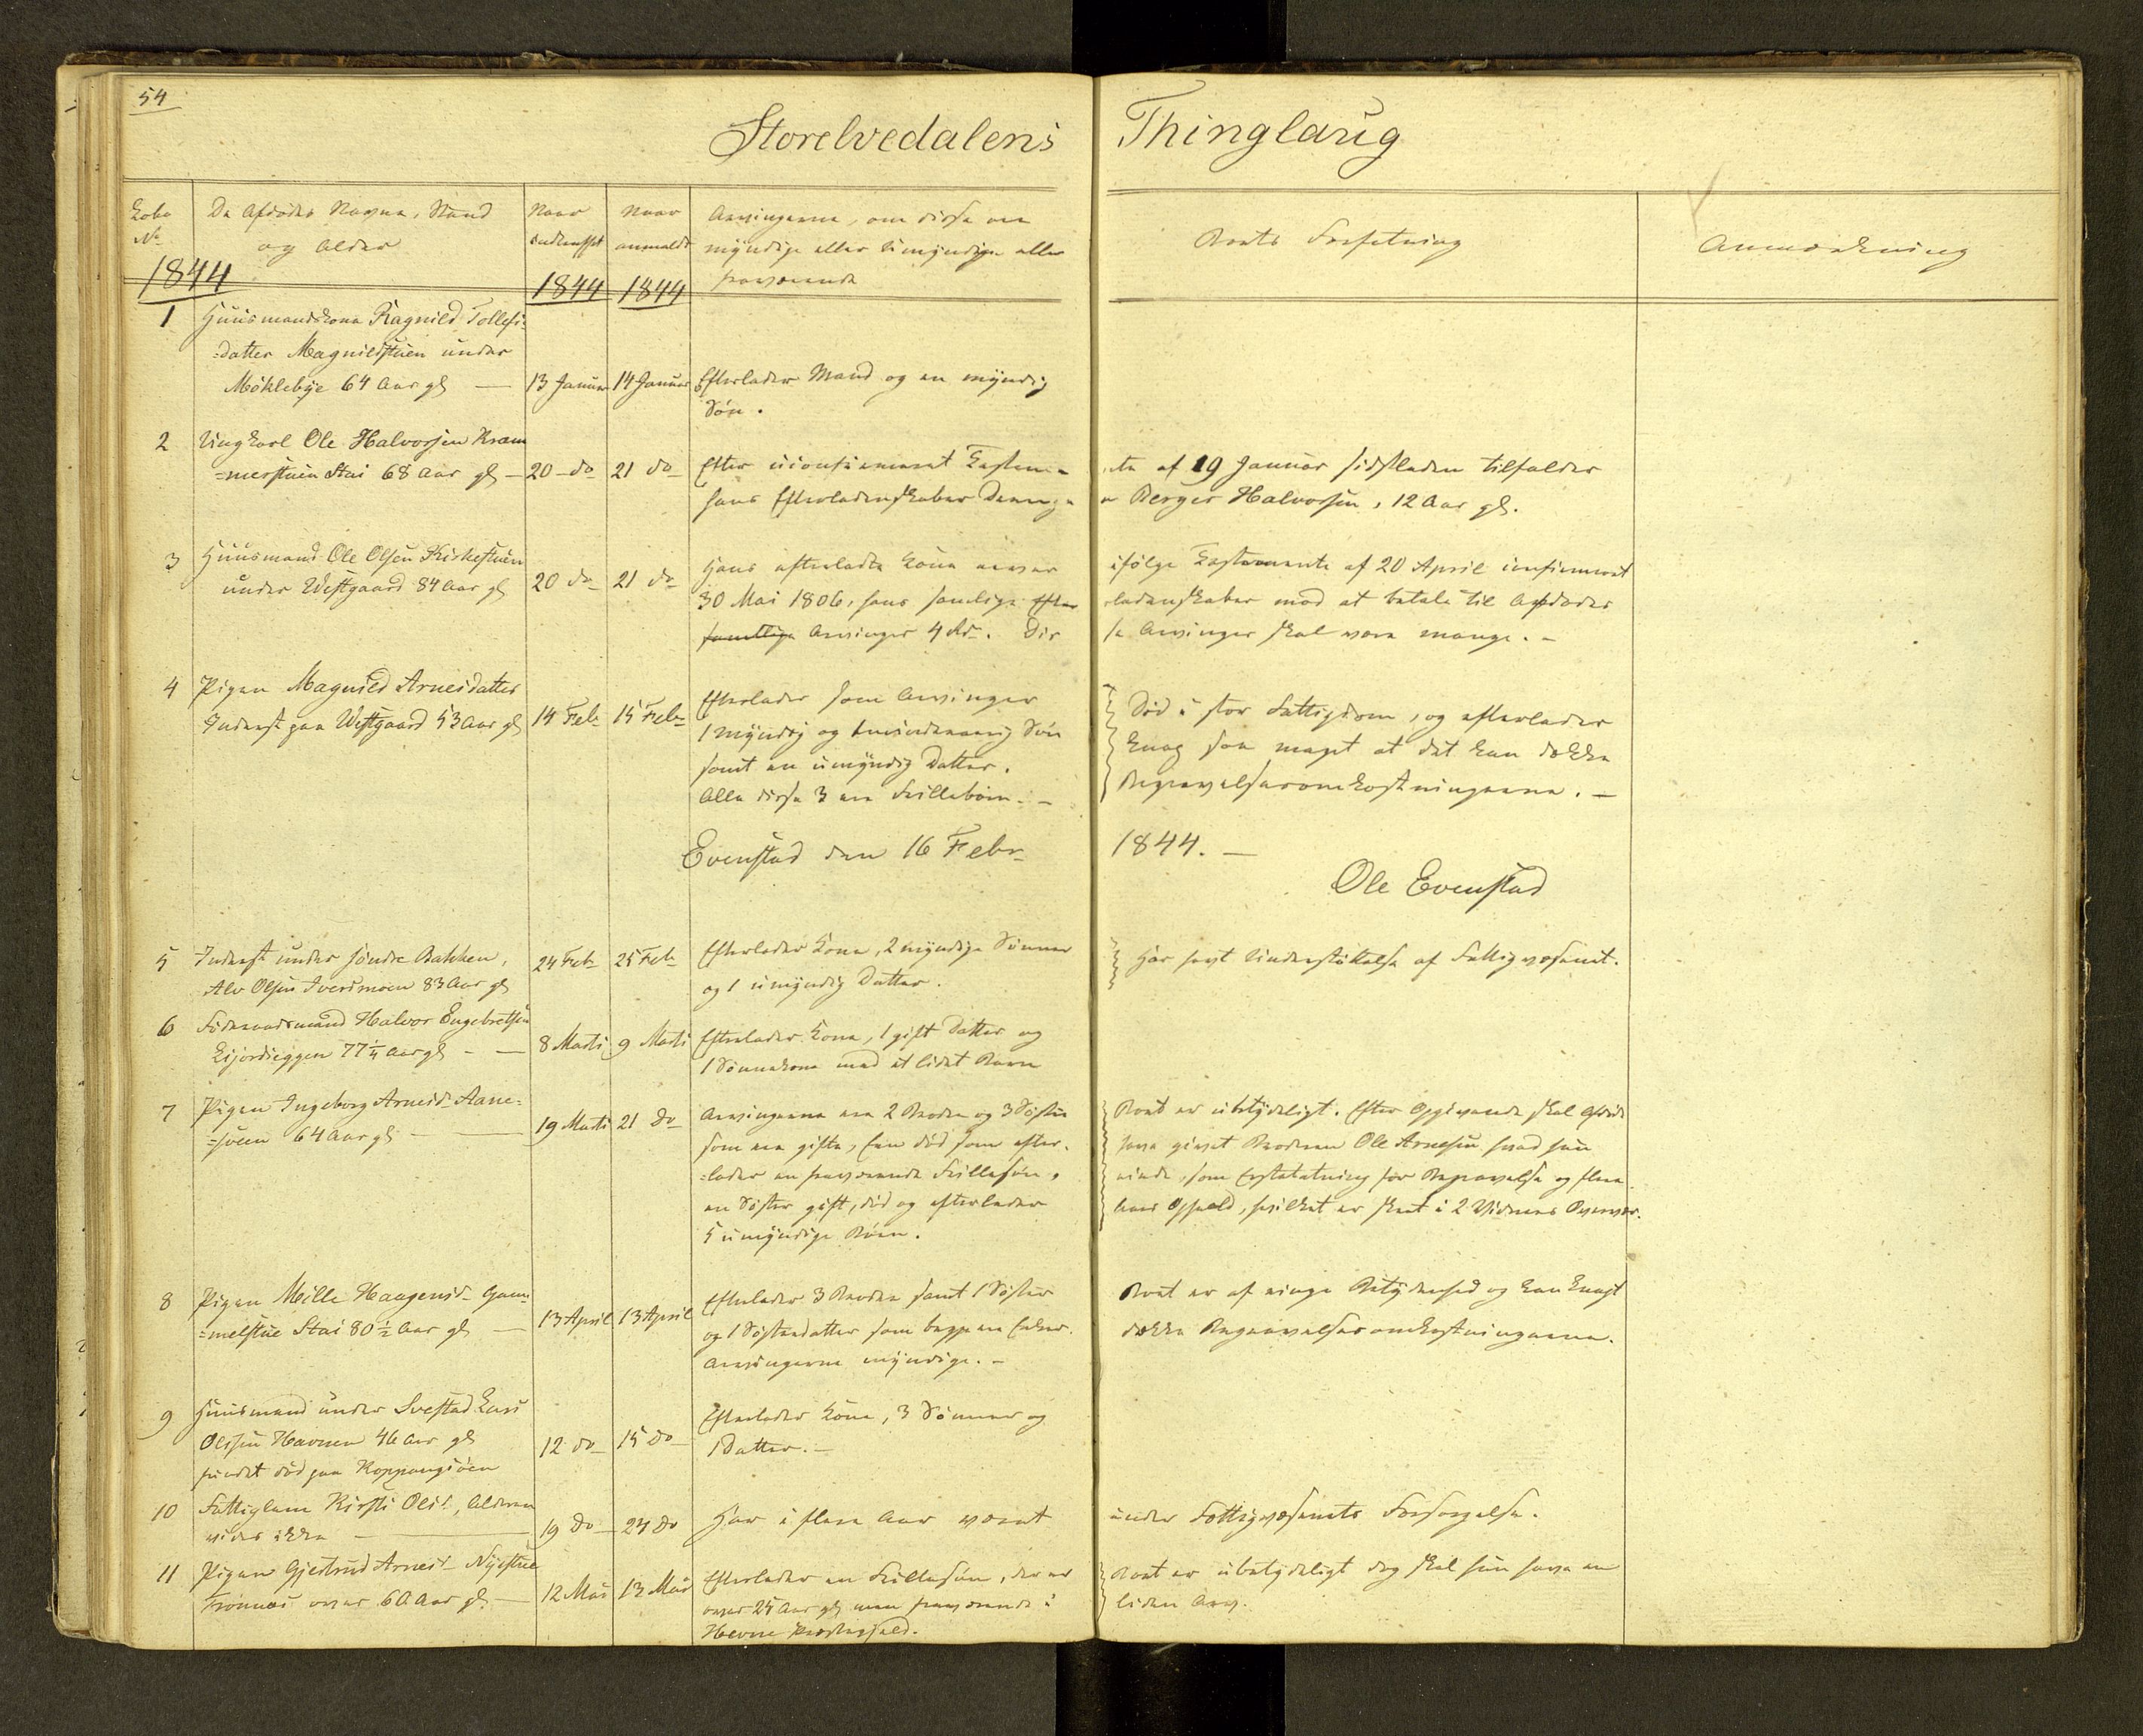 54
Storelvedalens Thinglaug
Løbe
No
De Afdødes Navne, Stand
og Alder
Naar
indtruffet
Naar
anmeldt
Arvingerne, om disse ere
myndige eller umyndige eller
fraværende
Boets Forfatning
Anmærkning
1844
1844
1844
1 Huusmandskone Ragnild Tollefs-
=datter Magnildstuen under
Møklebye 64 Aar gl — 13 Januar 14 Januar Efterlader Mand og en myndig
Søn.
2 Ungkarl Ole Halvorsen Kram
=merstuen Stai 68 Aar gl — 20 do 21 do Efter uconfirmeret Testame
nte af 19 Januar sidstleden tilfalder
hans Efterladenskaber Drenge
n Berger Halvorsen, 12 Aar gl.
3 Huusmand Ole Olsen Kirkestuen
under Westgaard 84 Aar gl 20 do 21 do
Hans efterladte Kone arver
ifølge Testamente af 20 April confirmeret
30 Mai 1806, hans samlige Efter
ladenskaber mod at betale til Afdødes
samtlige Arvinger 4 Rd. Dis
se Arvinger skal være mange. –
4 Pigen Magnild Arnesdatter
Inderst paa Westgaard 53 Aar gl 14 Feb 15 Feb
Efterlader som Arvinger
1 myndig og Søn
samt en umyndig Datter.
Alle disse 3 ere Frillebørn. –
Død i stor Fattigdom, og efterlader
knap saa meget at det kan dække
Begravelsesomkostningerne. –
Evenstad den 16 Febr 1844. –
Ole Evenstad
5 Inderst under søndre Bakken,
Alv Olsen Iversmoen 83 Aar gl
24 Feb 25 Feb
Efterlader Kone, 2 myndige Sønner
og 1 umyndig Datter.
Har havt Understøttelse af Fattigvæsenet.
6 Føderaadsmand Halvor Engebretsen
77 1/4 Aar gl — 8 Marti 9 Marti
Efterlader Kone, 1 gift Datter og
1 Sønnekone med et lidet Barn
7 Pigen Ingeborg Arnesd. Aane=
=søen 64 Aar gl — 19 Marti 21 do
Arvingerne ere 2 Brødre og 3 Søstre
som ere gifte, Een død som efter-
=lader en fraværende Frillesøn,
en Søster gift, død og efterlader
5 umyndige Børn.
Boet er ubetydeligt. Efter Opgivende skal Afdøde
have givet Broderen Ole Arnesen hvad hun
eiede, som Erstatning for Begravelse og flere
Aars Ophold, hvilket er skeet i 2 Vidners Overvær.
8 Pigen Mille Haagensd. Gam=
=melstue Stai 80 1/2 Aar gl — 13 April 13 April
Efterlader 3 Brødre samt 1 Søster
og 1 Søsterdatter som begge ere Enker.
Arvingerne myndige. –
Boet er af ringe Betydenhed og kan knapt
dække Begravelsesomkostningerne.
9 Huusmand under Svestad Lars
Olsen Havnen 46 Aar gl
fundet død paa Koppangsøen
12 do 15 do
Efterlader Kone, 3 Sønner og
1 Datter. –
10 Fattiglem Kirsti Olsd., Alderen
vides ikke — 19 do 24 do
Har i flere Aar været under Fattigvæsenets Forsørgelse.
11 Pigen Gjertrud Arnesd. Nyestue
over 60 Aar gl. — 12 Mai 13 Mai
Efterlader en Frillesøn, der er
over 25 Aar gl, men fraværende i
Hevne Præstegjeld.
Boet er ubetydeligt dog skal hun have en
liden Arv.